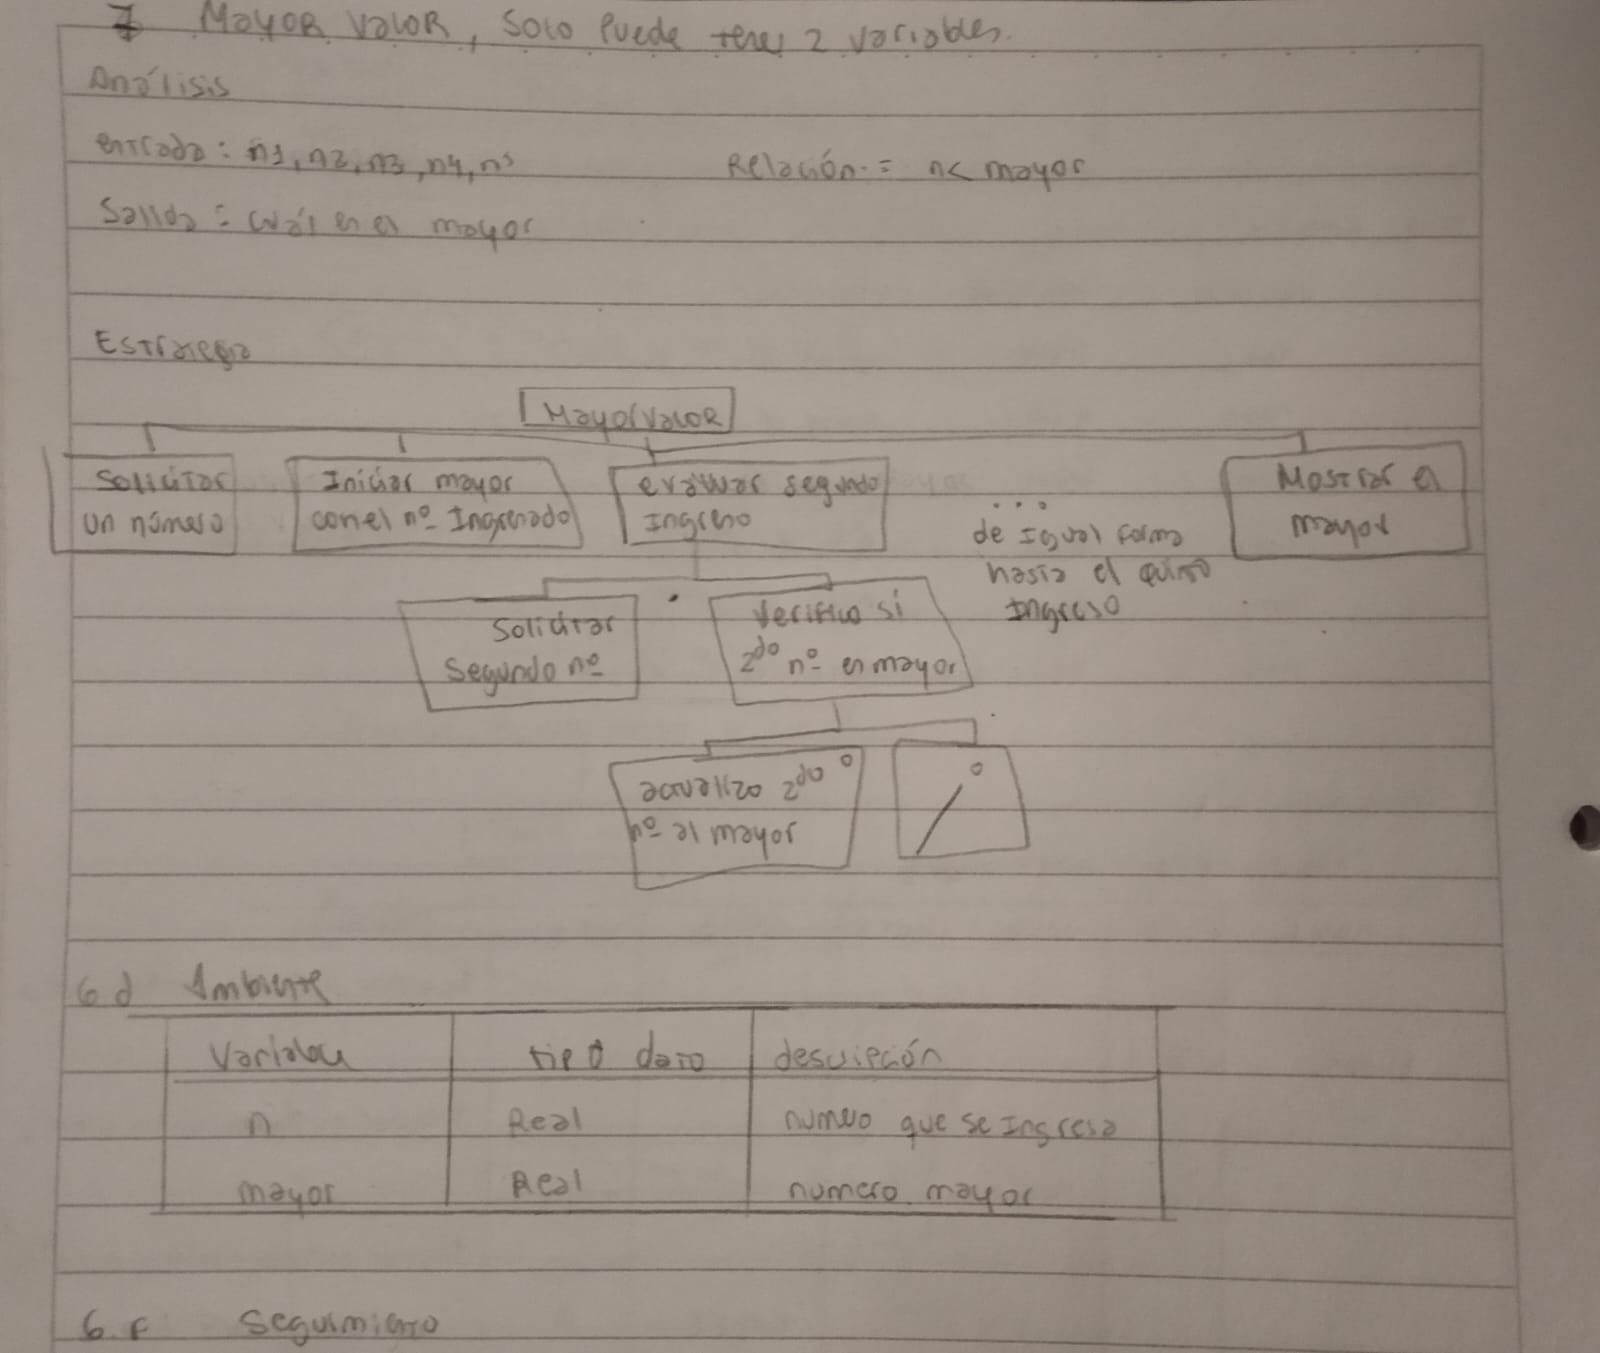 7 Mayor valor, solo puede tener 2 variables.
Análisis
entrada: n1, n2, n3, n4, n5
Relación = n< mayor
Salida = cuál es el mayor
Estrategia
Mayor valor
Solicitar
un número
Iniciar mayor
con el nº Ingresado
evaluar segundo
Ingreso
...
de Igual forma
hasta el quinto
Ingreso
Mostrar el
mayor
Solicitar
segundo nº
Verifico si
2do nº es mayor
actualizo 2do
nº al mayor
o
o
6 d Ambiente
Variables tipo dato descripción
n Real numero que se Ingresa
mayor Real numero mayor
6. f Seguimiento